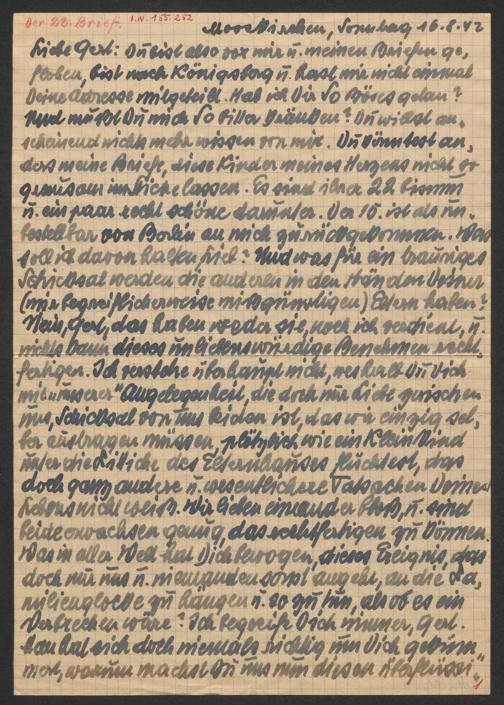 Der 22. Brief. I.N. 155.252
Mooskirchen, Sonntag 16.8.42
Liebe Gert: Du bist also vor mir u. meinen Briefen ge,
flohen, bist nach Königsberg u. hast mir nicht einmal
Deine Adresse mitgeteilt. Hab ich Dir so Böses getan?
Und mußt Du mich so bitter kränken? Du willst an,
scheinend nichts mehr wissen von mir. Du könntest an,
ders meine Briefe, diese Kinder meines Herzens nicht so
grausam im Stiche lassen. Es sind ihrer 22 bisnun
u. ein paar recht schöne darunter. Der 15. ist als un,
bestellbar von Berlin an mich zurückgekommen. Was
soll ich davon halten, sich? Und was für ein trauriges
Schicksal werden die anderen in den Händen Deiner
(mir begreiflicherweise mißgünstigen) Eltern haben?
Nein, Gert, das haben weder sie, noch ich verdient, u.
nichts kann dieses unliebenswürdige Benehmen recht,
fertigen. Ich verstehe überhaupt nicht, weshalb Du Dich
mit "unserer" Angelegenheit, die doch nur Liebe zwischen
uns, Schicksal von uns beiden ist, das wir einzig sel,
ber austragen müssen, plötzlich wie ein Kleinkind
unter die Fittiche des Elternhauses flüchtest, das
doch ganz andere u. wesentlichere Tatsachen Deines
Lebens nicht weiß. Wir lieben einander bloß, u. sind
beide erwachsen genug, das rechtfertigen zu können.
Was in aller Welt hat Dich bewogen, dieses Ereignis, das
doch nur uns u. niemanden sonst angeht, an die Fa,
milienglocke zu hängen u. so zu tun, als ob es ein
Verbrechen wäre? Ich begreife Dich nimmer, Gert.
Man hat sich doch niemals richtig um Dich geküm,
mert, warum machst Du uns nun diesen überflüssi,
1